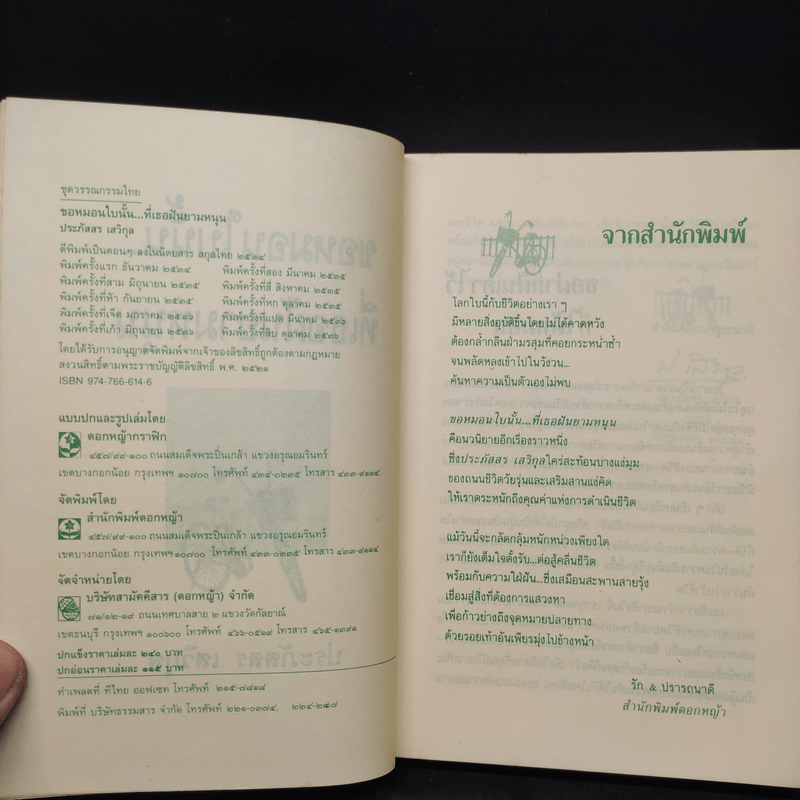 ชุดวรรณกรรมไทย
ขอหมอนใบนั้น...ที่เธอฝันยามหนุน
ประภัสสร เสวิกุล
ตีพิมพ์เป็นตอนๆ ลงในนิตยสาร สกุลไทย ๒๕๓๔
พิมพ์ครั้งแรก ธันวาคม ๒๕๓๔ พิมพ์ครั้งที่สอง มีนาคม ๒๕๓๕
พิมพ์ครั้งที่สาม มิถุนายน ๒๕๓๕ พิมพ์ครั้งที่สี่ สิงหาคม ๒๕๓๕
พิมพ์ครั้งที่ห้า กันยายน ๒๕๓๕ พิมพ์ครั้งที่หก ตุลาคม ๒๕๓๕
พิมพ์ครั้งที่เจ็ด มกราคม ๒๕๓๖ พิมพ์ครั้งที่แปด มีนาคม ๒๕๓๖
พิมพ์ครั้งที่เก้า มิถุนายน ๒๕๓๖ พิมพ์ครั้งที่สิบ ตุลาคม ๒๕๓๖
โดยได้รับการอนุญาตจัดพิมพ์จากเจ้าของลิขสิทธิ์ถูกต้องตามกฎหมาย
สงวนสิทธิ์ตามพระราชบัญญัติลิขสิทธิ์ พ.ศ. ๒๕๒๑
ISBN 974-766-614-6
แบบปกและรูปเล่มโดย
ดอกหญ้ากราฟิก
๔๕๗/๙๙-๑๐๐ ถนนสมเด็จพระปิ่นเกล้า แขวงอรุณอมรินทร์
เขตบางกอกน้อย กรุงเทพฯ ๑๐๗๐๐ โทรศัพท์ ๔๓๔-๐๒๓๕ โทรสาร ๔๓๓-๙๑๑๔
จัดพิมพ์โดย
สำนักพิมพ์ดอกหญ้า
๔๕๗/๙๙-๑๐๐ ถนนสมเด็จพระปิ่นเกล้า แขวงอรุณอมรินทร์
เขตบางกอกน้อย กรุงเทพฯ ๑๐๗๐๐ โทรศัพท์ ๔๓๓-๐๒๓๕ โทรสาร ๔๓๓-๙๑๑๔
จัดจำหน่ายโดย
บริษัทสามัคคีสาร (ดอกหญ้า) จำกัด
๗๑/๑๒-๑๙ ถนนเทศบาลสาย ๒ แขวงวัดกัลยาณ์
เขตธนบุรี กรุงเทพฯ ๑๐๖๐๐ โทรศัพท์ ๔๖๖-๐๕๑๙ โทรสาร ๔๖๕-๑๓๙๑
ปกแข็งราคาเล่มละ ๒๔๐ บาท
ปกอ่อนราคาเล่มละ ๑๑๕ บาท
ทำเพลตที่ ทีไทย ออฟเซท โทรศัพท์ ๒๑๕-๗๘๑๘
พิมพ์ที่ บริษัทธรรมสาร จำกัด โทรศัพท์ ๒๒๑-๐๓๗๔,
จากสำนักพิมพ์
โลกใบนี้กับชีวิตอย่างเรา ๆ
มีหลายสิ่งอุบัติขึ้นโดยไม่ได้คาดหวัง
ต้องกล้ำกลืนฝ่ามรสุมที่คอยกระหน่ำซ้ำ
จนพลัดหลงเข้าไปในวังวน...
ค้นหาความเป็นตัวเองไม่พบ
ขอหมอนใบนั้น...ที่เธอฝันยามหนุน
คือนวนิยายอีกเรื่องราวหนึ่ง
ซึ่งประภัสสร เสวิกุลใคร่สะท้อนบางแง่มุม
ของถนนชีวิตวัยรุ่นและเสริมสานแง่คิด
ให้เราตระหนักถึงคุณค่าแห่งการดำเนินชีวิต
แม้วันนี้จะกลัดกลุ้มหนักหน่วงเพียงใด
เราก็ยังเต็มใจตั้งรับ...ต่อสู้คลื่นชีวิต
พร้อมกับความใฝ่ฝัน...ซึ่งเสมือนสะพานสายรุ้ง
เชื่อมสู่สิ่งที่ต้องการแสวงหา
เพื่อก้าวย่างถึงจุดหมายปลายทาง
ด้วยรอยเท้าอันเพียรมุ่งไปข้างหน้า
รัก & ปรารถนาดี
สำนักพิมพ์ดอกหญ้า